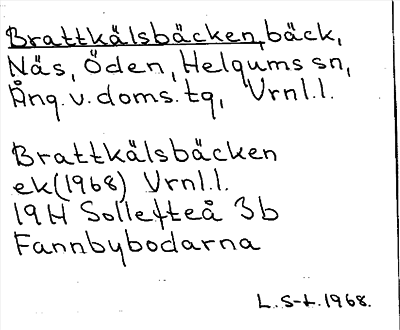 Brattkälsbäcken, bäck,
Näs, Öden, Helgums sn,
Ång. v. doms. tg, Vrnl. l.
Brattkälsbäcken
ek (1968) Vrnl. l.
19H Sollefteå 3b
Fannbybodarna
L. S-t. 1968.